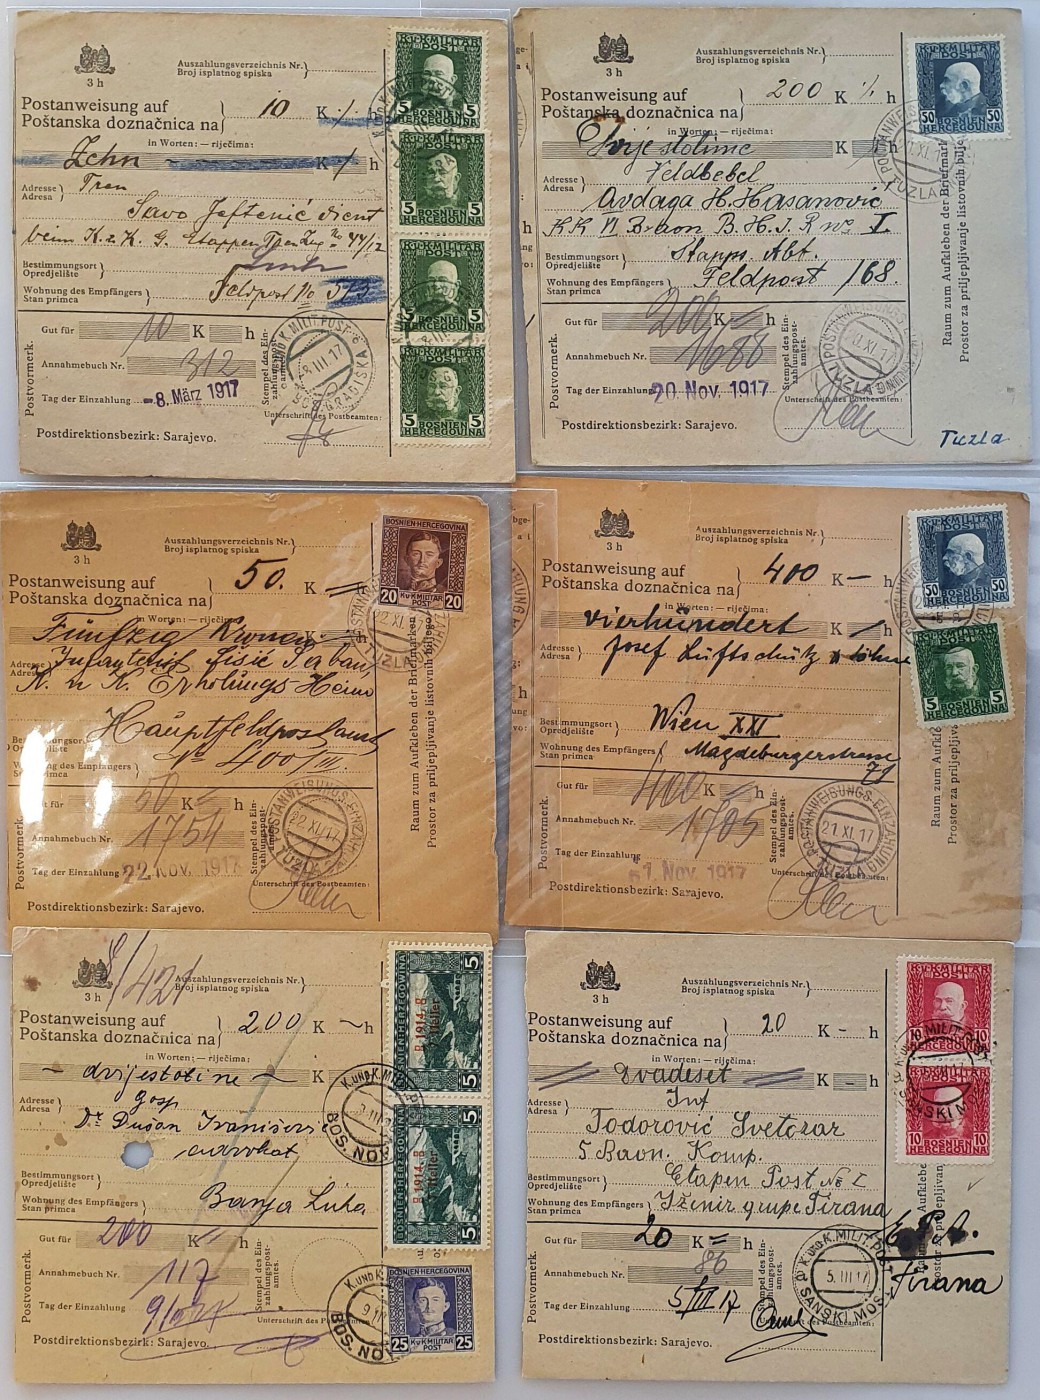 3 h
Auszahlungsverzeichnis Nr.
Broj isplatnog spiska
Postanweisung auf
Poštanska doznačnica na
10 K h
in Worten: — riječima:
Zehn K h
Adresse
Adresa
Tren
Savo Jeftenić dient
beim K.u.K. G. Etappen Tren Zug No 44/12
Bestimmungsort
Opredjelište
Wohnung des Empfängers
Stan primca
Feldpost No 573
Gut für 10 K h
Annahmebuch Nr. 312
Tag der Einzahlung -8. März 1917
Postvormerk.
Stempel des Einzahlungspostamtes.
Unterschrift des Postbeamten:
Postdirektionsbezirk: Sarajevo.
K.u.K. MILITÄR POST
5 5
BOSNIEN HERCEGOVINA
K.u.K. MILITÄR POST
5 5
BOSNIEN HERCEGOVINA
K.u.K. MILITÄR POST
5 5
BOSNIEN HERCEGOVINA
K.u.K. MILITÄR POST
5 5
BOSNIEN HERCEGOVINA
3 h
Auszahlungsverzeichnis Nr.
Broj isplatnog spiska
Postanweisung auf
Poštanska doznačnica na
200 K h
in Worten: — riječima:
Dvjestotine K h
Adresse
Adresa
Feldbebel
Avdaga H. Hasanović
Stapps. Abt.
Bestimmungsort
Opredjelište
Wohnung des Empfängers
Stan primca
Feldpost 168.
Gut für 200 K h
Annahmebuch Nr. 1688
Tag der Einzahlung 20. Nov. 1917
Postvormerk.
Stempel des Einzahlungspostamtes.
Unterschrift des Postbeamten:
Postdirektionsbezirk: Sarajevo.
Tuzla
Raum zum Aufkleben der Briefmark
Prostor za priljepljivanje listovnih bilje
K.u.K. MILITÄR POST
50 50
BOSNIEN HERCEGOVINA
3 h
Auszahlungsverzeichnis Nr.
Broj isplatnog spiska
Postanweisung auf
Poštanska doznačnica na
50. K h
in Worten: — riječima:
Fünfzig Kronen K h
Adresse
Adresa
Infanterist Šišić Serban
K. u K. Erholungs Heim
Bestimmungsort
Opredjelište
Hauptfeldpostamt
Wohnung des Empfängers
Stan primca
No 400/III.
Gut für 50 K h
Annahmebuch Nr. 1754
Tag der Einzahlung 22. Nov. 1917
22 XI. 17
TUZLA
Postvormerk.
Stempel des Einzahlungspostamtes.
Unterschrift des Postbeamten:
Postdirektionsbezirk: Sarajevo.
Raum zum Aufkleben der Briefmarken
Prostor za priljepljivanje listovnih biljego
BOSNIEN-HERCEGOVINA
20 20
K.u.K. MILITÄR POST
3 h
Auszahlungsverzeichnis Nr.
Broj isplatnog spiska
Postanweisung auf
Poštanska doznačnica na
400 K h
in Worten: — riječima:
vierhundert K h
Adresse
Adresa
Josef Luftschütz u Söhne
Bestimmungsort
Opredjelište
Wien XXI
Wohnung des Empfängers
Stan primca
Magdeburgerstrasse
Gut für 400 K h
Annahmebuch Nr. 1705
Tag der Einzahlung 1. Nov. 1917
POSTANWEISUNGS-EINZAHLUNG
21 XI. 17
TUZLA
Postvormerk.
Stempel des Einzahlungspostamtes.
Unterschrift des Postbeamten:
Postdirektionsbezirk: Sarajevo.
Raum zum Aufkle
Prostor za priljepljivan
K.u.K. MILITÄR POST
50 50
BOSNIEN HERCEGOVINA
5 5
BOSNIEN HERCEGOVINA
3 h
Auszahlungsverzeichnis Nr.
Broj isplatnog spiska
Postanweisung auf
Poštanska doznačnica na
200 K h
in Worten: — riječima:
dvijestotine K h
Adresse
Adresa
gosp
Dr Dušan Ivanišević
advokat
Bestimmungsort
Opredjelište
Wohnung des Empfängers
Stan primca
Banja Luka
Gut für 200 K h
Annahmebuch Nr. 117
Tag der Einzahlung
Postvormerk.
Stempel des Einzahlungspostamtes.
Unterschrift des Pos
Postdirektionsbezirk: Sarajevo.
BOSNIEN-HERCEGOVINA
1914. 5 5
Heller
BOSNIEN-HERCEGOVINA
1914. 5 5
Heller
25 25
K.u.K. MILITÄR POST
3 h
Auszahlungsverzeichnis Nr.
Broj isplatnog spiska
Postanweisung auf
Poštanska doznačnica na
20 K - h
in Worten: — riječima:
Dvadeset K - h
Adresse
Adresa
Inf
Todorović Svetozar
5 Baon. Komp.
Bestimmungsort
Opredjelište
Etapen Post No I
Wohnung des Empfängers
Stan primca
Iženir grupe Tirana
Gut für 20 K h
Annahmebuch Nr. 86
Tag der Einzahlung 5/III 17
K. UND K. MILIT. POST
5. III 17
SANSKI MOST
Tirana
Postvormerk.
Stempel des Einzahlungspostamtes.
Unterschrift des Postbeamten:
Postdirektionsbezirk: Sarajevo.
K.u.K. MILITÄR POST
10 10
10 10
BOSNIEN HERCEGOVINA